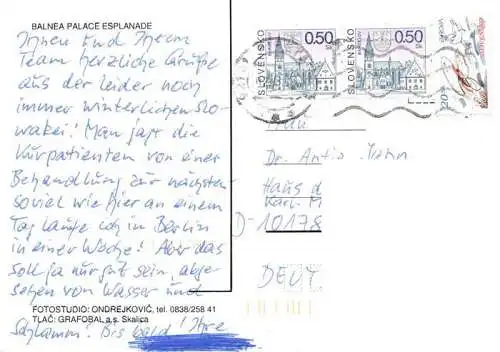 BALNEA PALACE ESPLANADE
Ihnen und Ihrem
Team herzliche Grüße
aus der leider noch
immer winterlichen Slo-
wakei! Man jagt die
Kurpatienten von einer
Behandlung zur nächsten
soviel wie hier an einem
Tag laufe ich in Berlin
in einer Woche! Aber das
soll ja nur gut sein, abge-
sehen von Wasser und
FOTOSTUDIO: ONDREJKOVIČ, tel. 0838/258 41
TLAČ: GRAFOBAL a.s. Skalica
Schlamm! Bis bald! Ihre
SLOVENSKO
0.50
SLOVENSKO
0.50
Frau
Dr.
Haus d
Karl-M
D-10178
DEUT